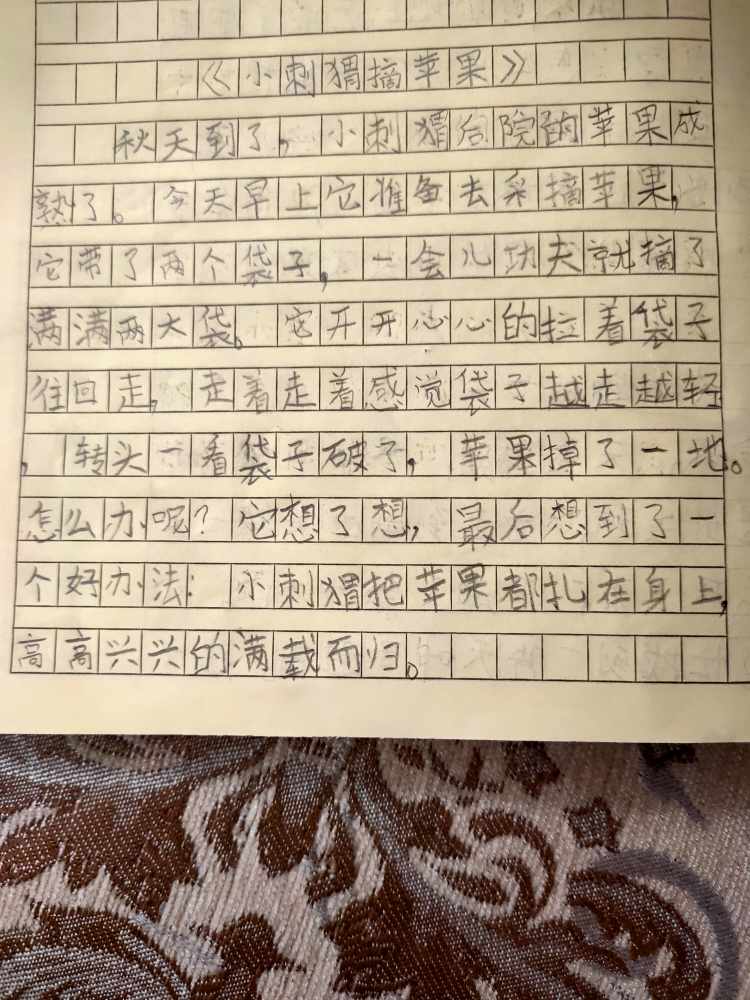 《小刺猬摘苹果》
秋天到了，小刺猬后院的苹果成
熟了。今天早上它准备去采摘苹果，
它带了两个袋子，一会儿功夫就摘了
满满两大袋。它开开心心的拉着袋子
往回走，走着走着感觉袋子越走越轻
，转头一看袋子破了，苹果掉了一地。
怎么办呢？它想了想，最后想到了一
个好办法：小刺猬把苹果都扎在身上，
高高兴兴的满载而归。